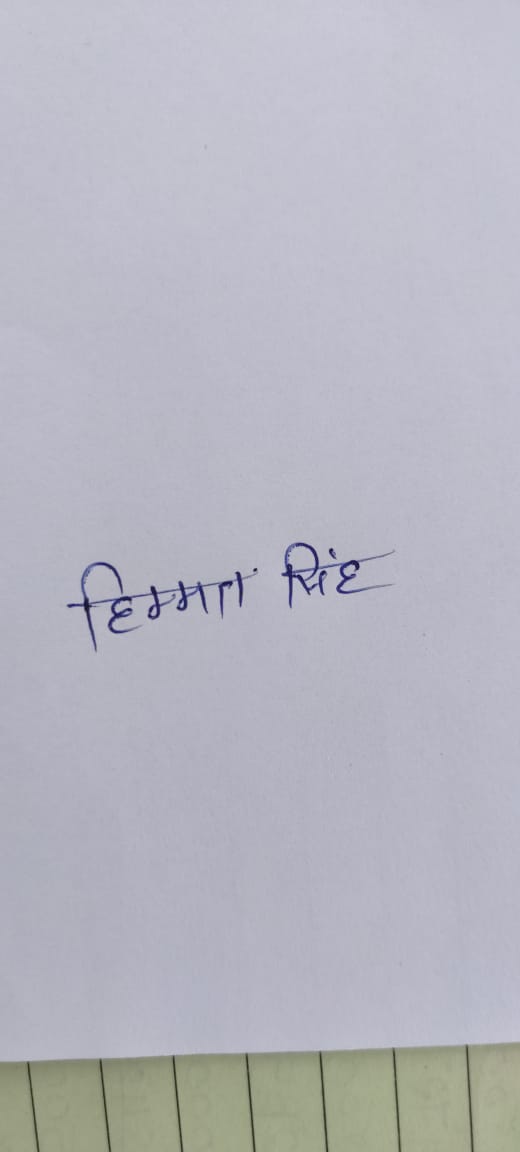 हिम्मत सिंह